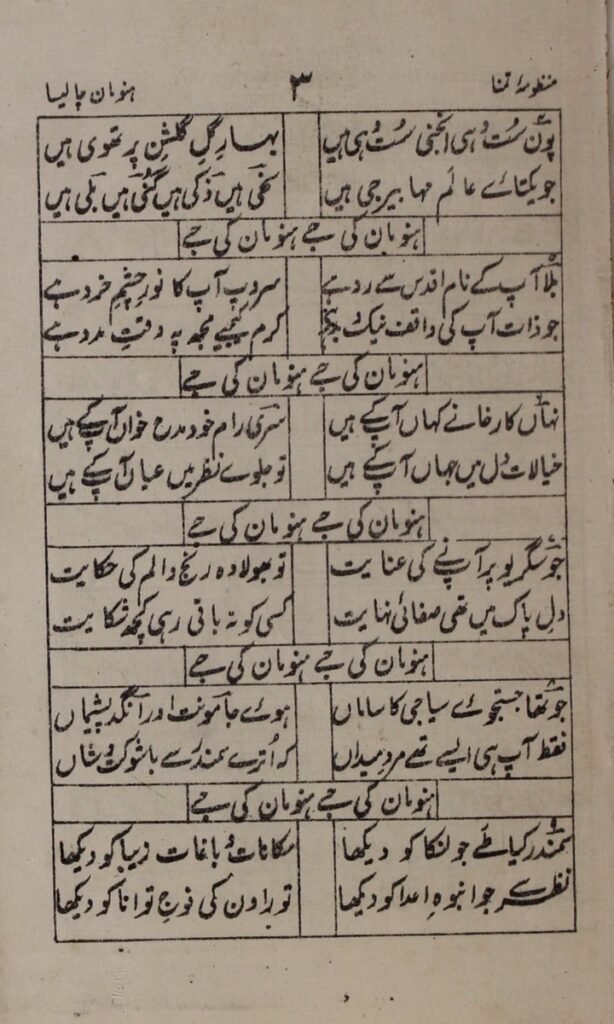 منظومۂ تمنا ۳ ہنومان چالیسا
پون سُت وُہی انجنی سُت وُہی ہیں بہارِ گلِ گلشنِ پرتھوی ہیں
جو یکتائے عالم مہابیر جی ہیں سخی ہیں ذکی ہیں گنی ہیں بلی ہیں
ہنومان کی جے ہنومان کی جے
بلا آپ کے نام اقدس سے رد ہے سروپ آپ کا نورِ چشمِ خرد ہے
جو ذات آپ کی واقف نیک و بد ہے کرم کیجیے مجھ پہ وقتِ مدد ہے
ہنومان کی جے ہنومان کی جے
نہاں کارخانے کہاں آپکے ہیں سری رام خود مدح خواں آپکے ہیں
خیالات دل میں جہاں آپکے ہیں تو جلوے نظر میں عیاں آپکے ہیں
ہنومان کی جے ہنومان کی جے
جو سگریو پر آپ نے کی عنایت تو بھولا وہ رنج و الم کی حکایت
دلِ پاک میں تھی صفائی نہایت کسی کو نہ باقی رہی کچھ شکایت
ہنومان کی جے ہنومان کی جے
جو تھا جستجوئے سیاجی کا ساماں ہوئے جامونت اور انگد پشیماں
فقط آپ ہی ایسے تھے مردِ میداں کہ اُترے سمندر سے باشوکت و شاں
ہنومان کی جے ہنومان کی جے
سمندر کیا طے جو لنکا کو دیکھا مکانات و باغات زیبا کو دیکھا
نظر سے جو انبوہِ اعدا کو دیکھا تو راون کی فوجِ توانا کو دیکھا